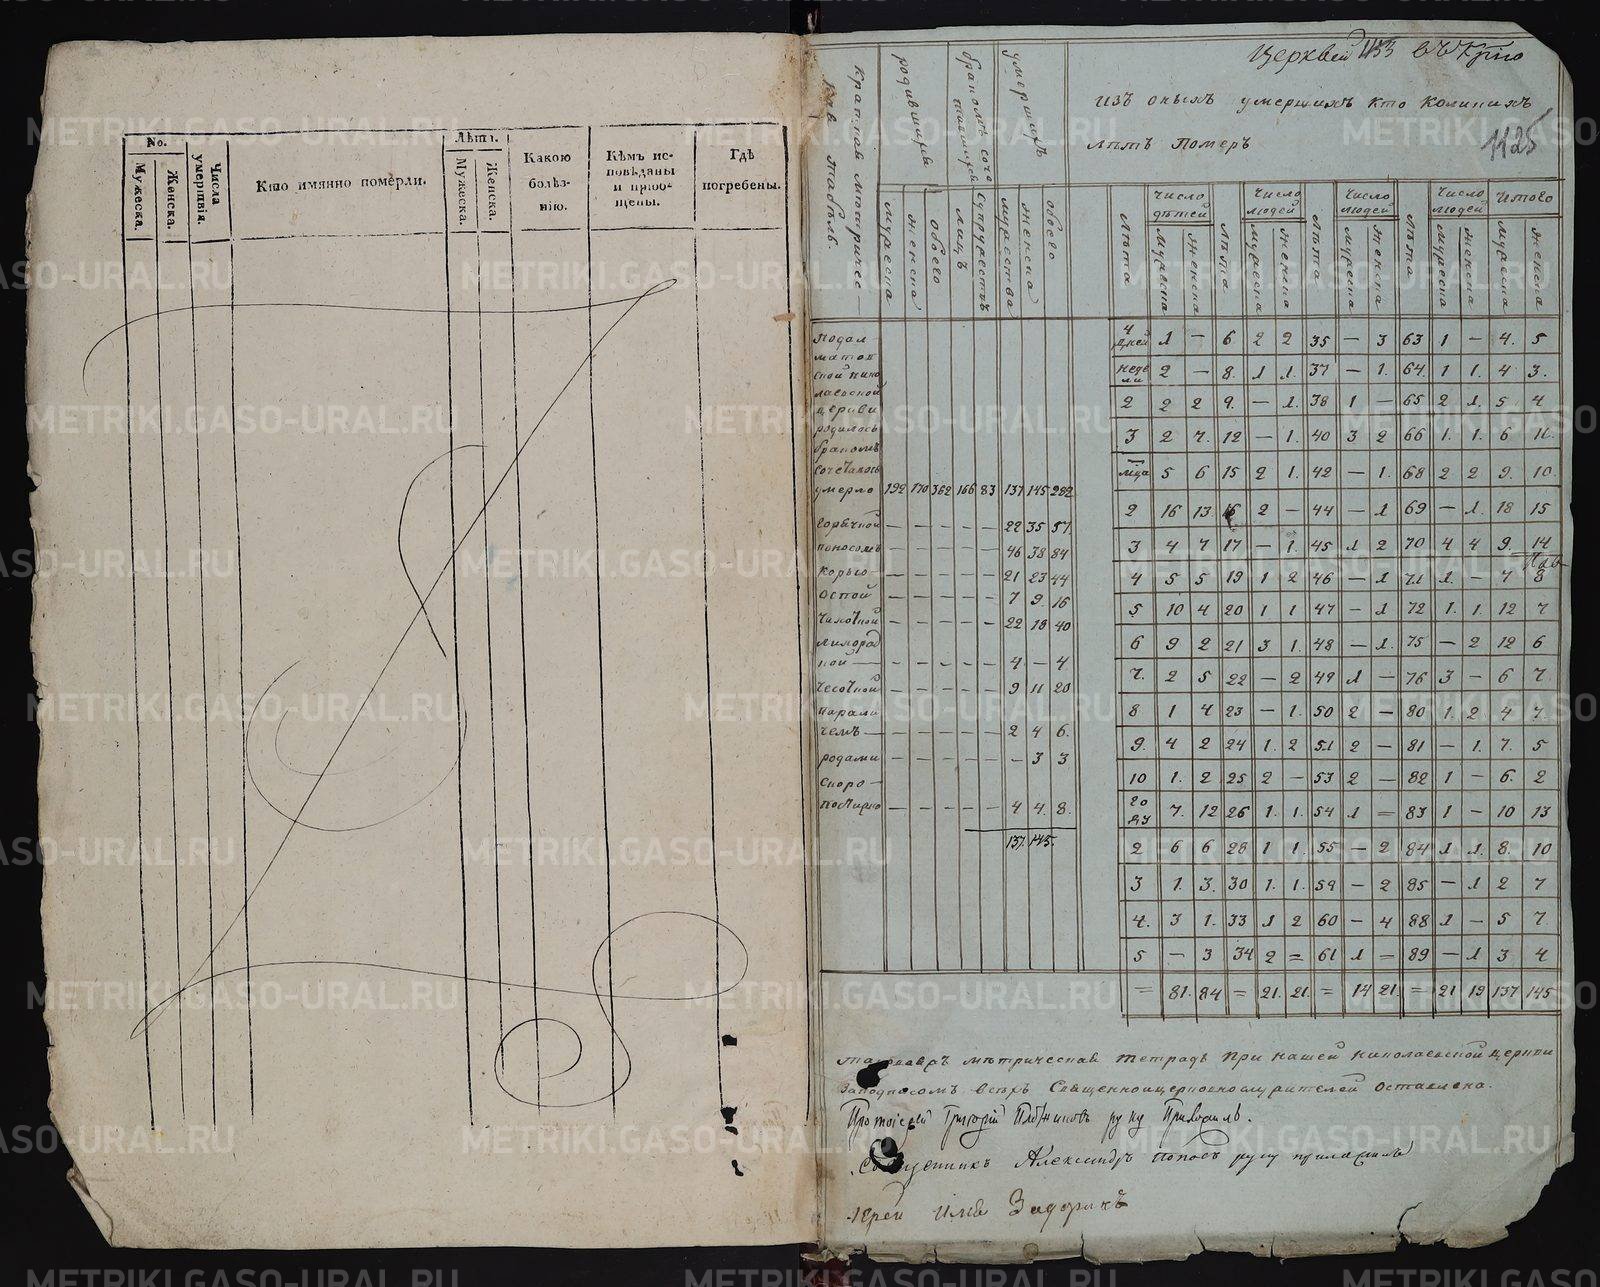 No.
Мужеска.
Женска.
Числа умертвія.
Кто имянно померли.
Лѣты.
Мужеска.
Женска.
Какою болѣз-нію.
Кѣмъ ис-повѣданы и пріоб-щены.
Гдѣ погребены.
Церквей
1125
изъ оныхъ умершихъ кто коликихъ
лѣтъ померъ
краткая метричес-
кая табель.
родившихся
бракомъ соче-тавшихся
умершихъ
мужеска
женска
обоего
лицъ
супружествъ
мужеска
женска
обоего
лѣта
число дѣтей
мужеска
женска
лѣта
число людей
мужеска
женска
лѣта
число людей
мужеска
женска
лѣта
число людей
мужеска
женска
итого
мужеска
женска
родилось
бракомъ
сочеталось
умерло 192 170 362 166 83 137 145 282
горячкой — — — — — 22 35 57
поносомъ — — — — — 46 38 84
корью — — — — — 21 23 44
оспой — — — — — 7 9 16
чахоткой — — — — — 22 18 40
лихорад
кой — — — — — 4 — 4
чесоткой — — — — — 9 11 20
парали
чемъ — — — — — 2 4 6
родами — — — — — — 3 3
скоро
постижно — — — — — 4 4 8
137 145
4 дней 1 — 6 2 2 35 — 3 63 1 — 4 5
неде ли 2 — 8 1 1 37 — 1 64 1 1 4 3
2 2 2 9 — 1 38 1 — 65 2 1 5 4
3 2 7 12 — 1 40 3 2 66 1 1 6 11
мца 5 6 15 2 1 42 — 1 68 2 2 9 10
2 16 13 16 2 — 44 — 1 69 — 1 18 15
3 4 7 17 — 1 45 1 2 70 4 4 9 14
4 5 5 19 1 2 46 — 1 71 1 — 7 8
5 10 4 20 1 1 47 — 1 72 1 1 12 7
6 9 2 21 3 1 48 — 1 75 — 2 12 6
7 2 5 22 — 2 49 1 — 76 3 — 6 7
8 1 4 23 — 1 50 2 — 80 1 2 4 7
9 4 2 24 1 2 51 2 — 81 — 1 7 5
10 1 2 25 2 — 53 2 — 82 1 — 6 2
го ду 7 12 26 1 1 54 1 = 83 1 — 10 13
2 6 6 28 1 1 55 — 2 84 1 1 8 10
3 1 3 30 1 1 59 — 2 85 — 1 2 7
4 3 1 33 1 2 60 — 4 88 1 — 5 7
5 — 3 34 2 = 61 1 = 89 — 1 3 4
= 81 84 = 21 21 = 14 21 = 21 19 137 145
метрическая тетрадь при нашей николаевской церкви
заподписомъ всѣхъ священноцерковнослужителей оставлена.
Протоіерей Григорій руку приложилъ.
Священникъ Александръ Поповъ руку приложилъ
Іерей Илія
METRIKI.GASO-URAL.RU